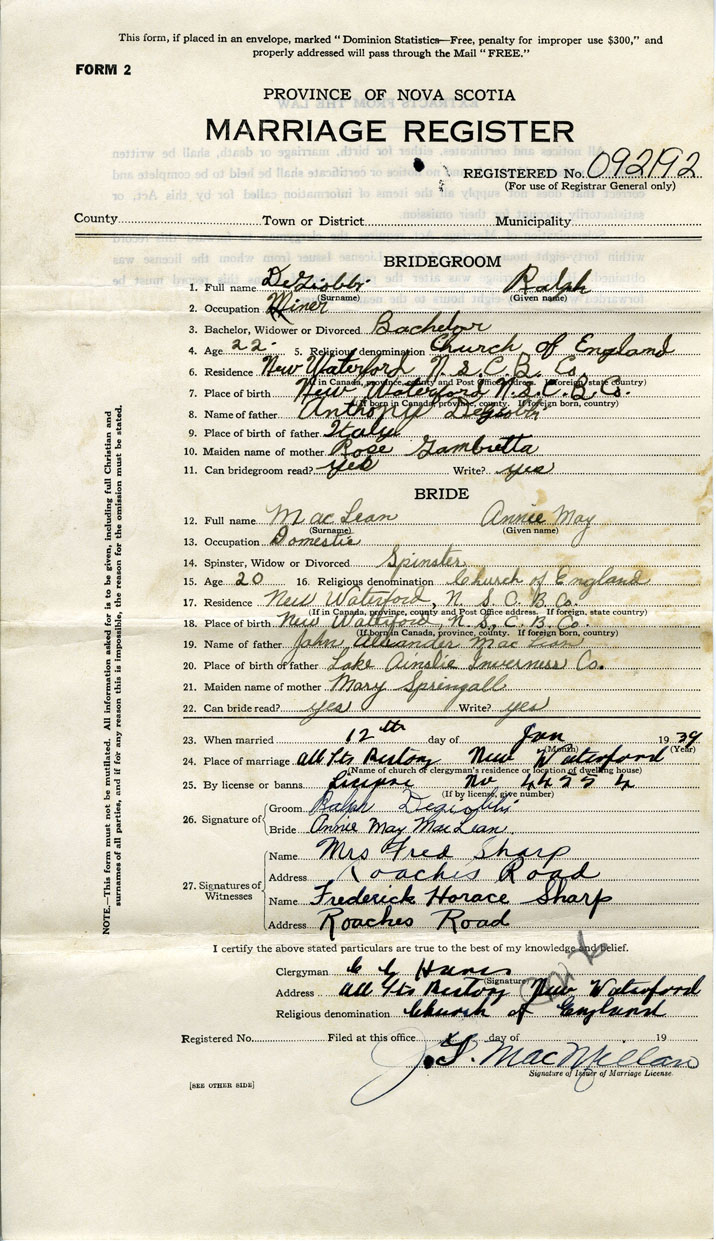 This form, if placed in an envelope, marked "Dominion Statistics—Free, penalty for improper use $300," and
properly addressed will pass through the Mail "FREE."
FORM 2
PROVINCE OF NOVA SCOTIA
MARRIAGE REGISTER
REGISTERED No. 092192
(For use of Registrar General only)
County Town or District Municipality
BRIDEGROOM
1. Full name DeGiobbi Ralph
(Surname) (Given name)
2. Occupation Miner
3. Bachelor, Widower or Divorced Bachelor
4. Age 22 5. Religious denomination Church of England
6. Residence New Waterford N.S.C.B. Co.
(If in Canada, province, county and Post Office address. If foreign, state country)
7. Place of birth New Waterford N.S.C.B Co.
(If born in Canada, province, county. If foreign born, country)
8. Name of father Anthony Degiobbi
9. Place of birth of father Italy
10. Maiden name of mother Rose Gambretta
11. Can bridegroom read? yes Write? yes
BRIDE
12. Full name MacLean Annie May
(Surname) (Given name)
13. Occupation Domestic
14. Spinster, Widow or Divorced Spinster
15. Age 20 16. Religious denomination Church of England
17. Residence New Waterford, N.S.C.B.Co.
(If in Canada, province, county and Post Office address. If foreign, state country)
18. Place of birth New Waterford, N.S.C.B.Co.
(If born in Canada, province, county. If foreign born, country)
19. Name of father John Alexander MacLean
20. Place of birth of father Lake Ainslie Inverness Co.
21. Maiden name of mother Mary Springall
22. Can bride read? yes Write? yes
23. When married 12th day of Jan 1939
(Month) (Year)
24. Place of marriage All Sts Rectory New Waterford
(Name of church or clergyman's residence or location of dwelling house)
25. By license or banns License No
(If by license, give number)
26. Signature of Groom Ralph Degiobbi
Bride Annie May MacLean
27. Signatures of Witnesses
Name Mrs Fred Sharp
Address Roaches Road
Name Frederick Horace Sharp
Address Roaches Road
I certify the above stated particulars are true to the best of my knowledge and belief.
Clergyman
(Signature)
Address All Sts Rectory New Waterford
Religious denomination Church of England
Registered No. Filed at this office day of 19
J. MacMillan
Signature of Issuer of Marriage License
[SEE OTHER SIDE]
NOTE.—This form must not be mutilated. All information asked for is to be given, including full Christian and
surnames of all parties, and if for any reason this is impossible, the reason for the omission must be stated.